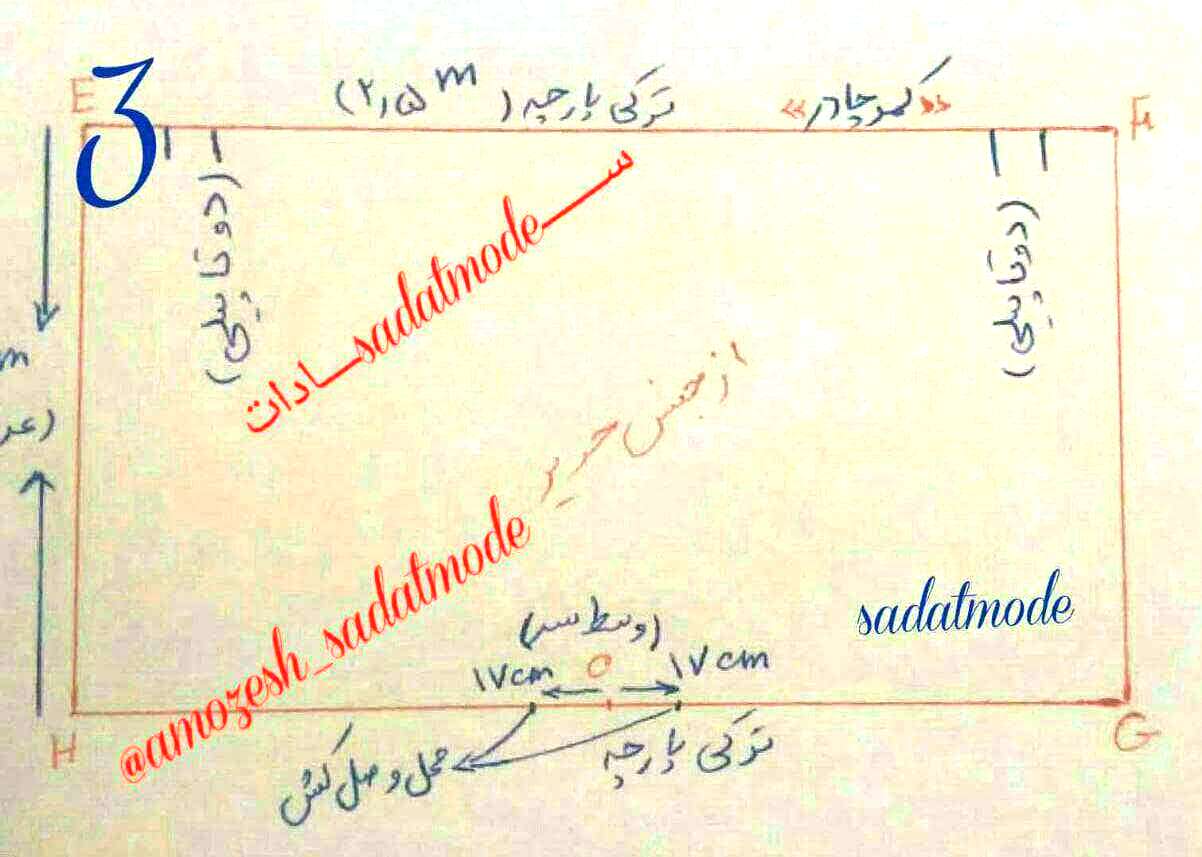 3
E
«کمر چادر»
ترکی پارچه (۲٫۵m)
F
(دوتا پیلی)
(دوتا پیلی)
ســـــادات sadatmode
از جنس حریر
m
(عر
@amozesh_sadatmode
sadatmode
(وسط سر)
۱۷cm O ۱۷cm
H
G
ترکی پارچه
محل وصل کش